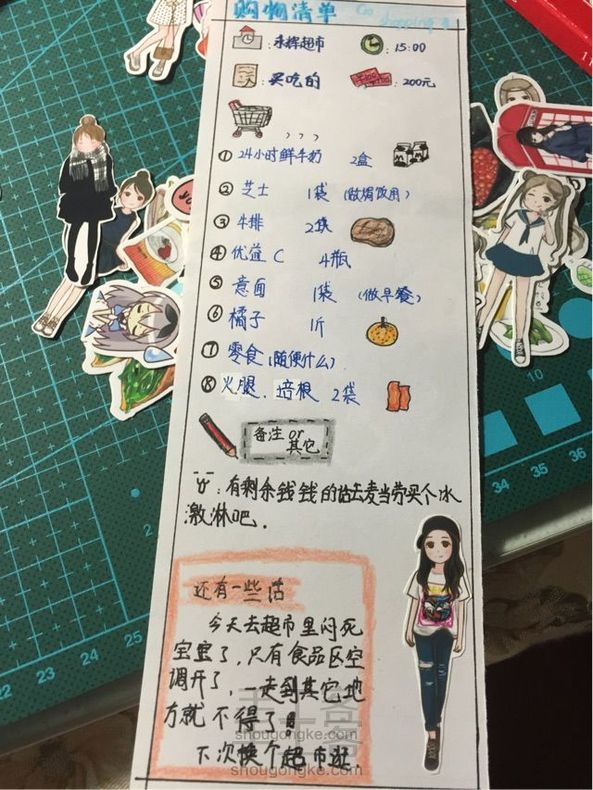 购物清单 Go shopping
: 永辉超市 : 15:00
: 买吃的 : 200元
, , ,
① 24小时鲜牛奶 2盒
② 芝士 1袋 (做焗饭用)
③ 牛排 2袋
④ 优益C 4瓶
⑤ 意面 1袋 (做早餐)
⑥ 橘子 1斤
⑦ 零食(随便什么)
⑧ 火腿、培根 2袋
备注or
其它
: 有剩余钱钱的话去麦当劳买个冰
激淋吧.
还有一些话
今天去超市里闷死
宝宝了,只有食品区空
调开了,一走到其它地
方就不得了!
下次换个超市逛.
shougongke.com
11
10
36
35
34
26
25
24
23
22